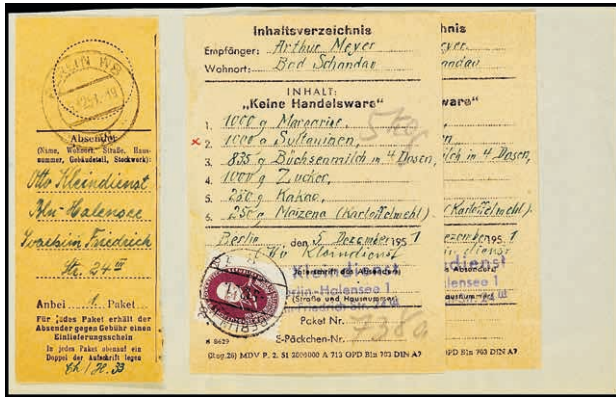 BERLIN W8
Absender
(Name, Wohnort, Straße, Haus-
nummer, Gebäudeteil, Stockwerk):
Otto Kleindienst
Bln-Halensee
Joachim Friedrich
Str. 24 III
Anbei 1 Paket
Für jedes Paket erhält der
Absender gegen Gebühr einen
Einlieferungsschein
In jedes Paket obenauf ein
Doppel der Aufschrift legen
Inhaltsverzeichnis
Empfänger: Arthur Meyer
Wohnort: Bad Schandau
INHALT:
„Keine Handelsware"
5 kg
1. 1000 g Margarine,
x 2. 1000 g Sultaninen,
3. 835 g Büchsenmilch in 4 Dosen,
4. 1000 g Zucker,
5. 250 g Kakao,
6. 250 g Maizena (Kartoffelmehl).
Berlin, den 5. Dezember 1951
Otto Kleindienst
(Unterschrift des Absenders)
Kleindienst
Berlin-Halensee 1
(Straße und Hausnummer)
Paket Nr.
E-Päckchen-Nr.
M 8629
MDV P. 2. 51 A 713 OPD Bln 703 DIN A7
nis
eyer.
andau
ware"
lch in 4 Dosen,
(Kartoffelmehl).
ezember 195 1
dienst
s Absenders
alensee 1
OPD Bln 703 DIN A7